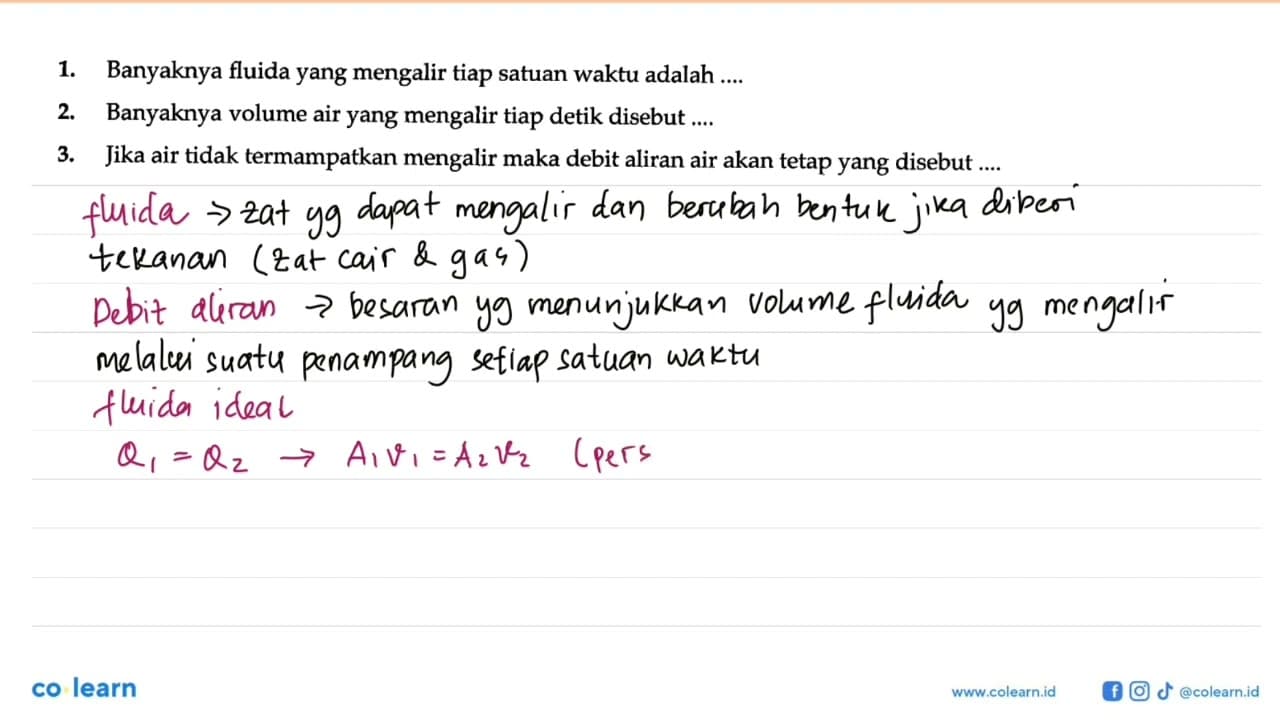 1. Banyaknya fluida yang mengalir tiap satuan waktu adalah ....
2. Banyaknya volume air yang mengalir tiap detik disebut ....
3. Jika air tidak termampatkan mengalir maka debit aliran air akan tetap yang disebut ....
fluida → zat yg dapat mengalir dan berubah bentuk jika diberi
tekanan (zat cair & gas)
Debit aliran → besaran yg menunjukkan volume fluida yg mengalir
melalui suatu penampang setiap satuan waktu
fluida ideal
Q₁ = Q₂ → A₁v₁ = A₂v₂ (pers
co learn
www.colearn.id @colearn.id